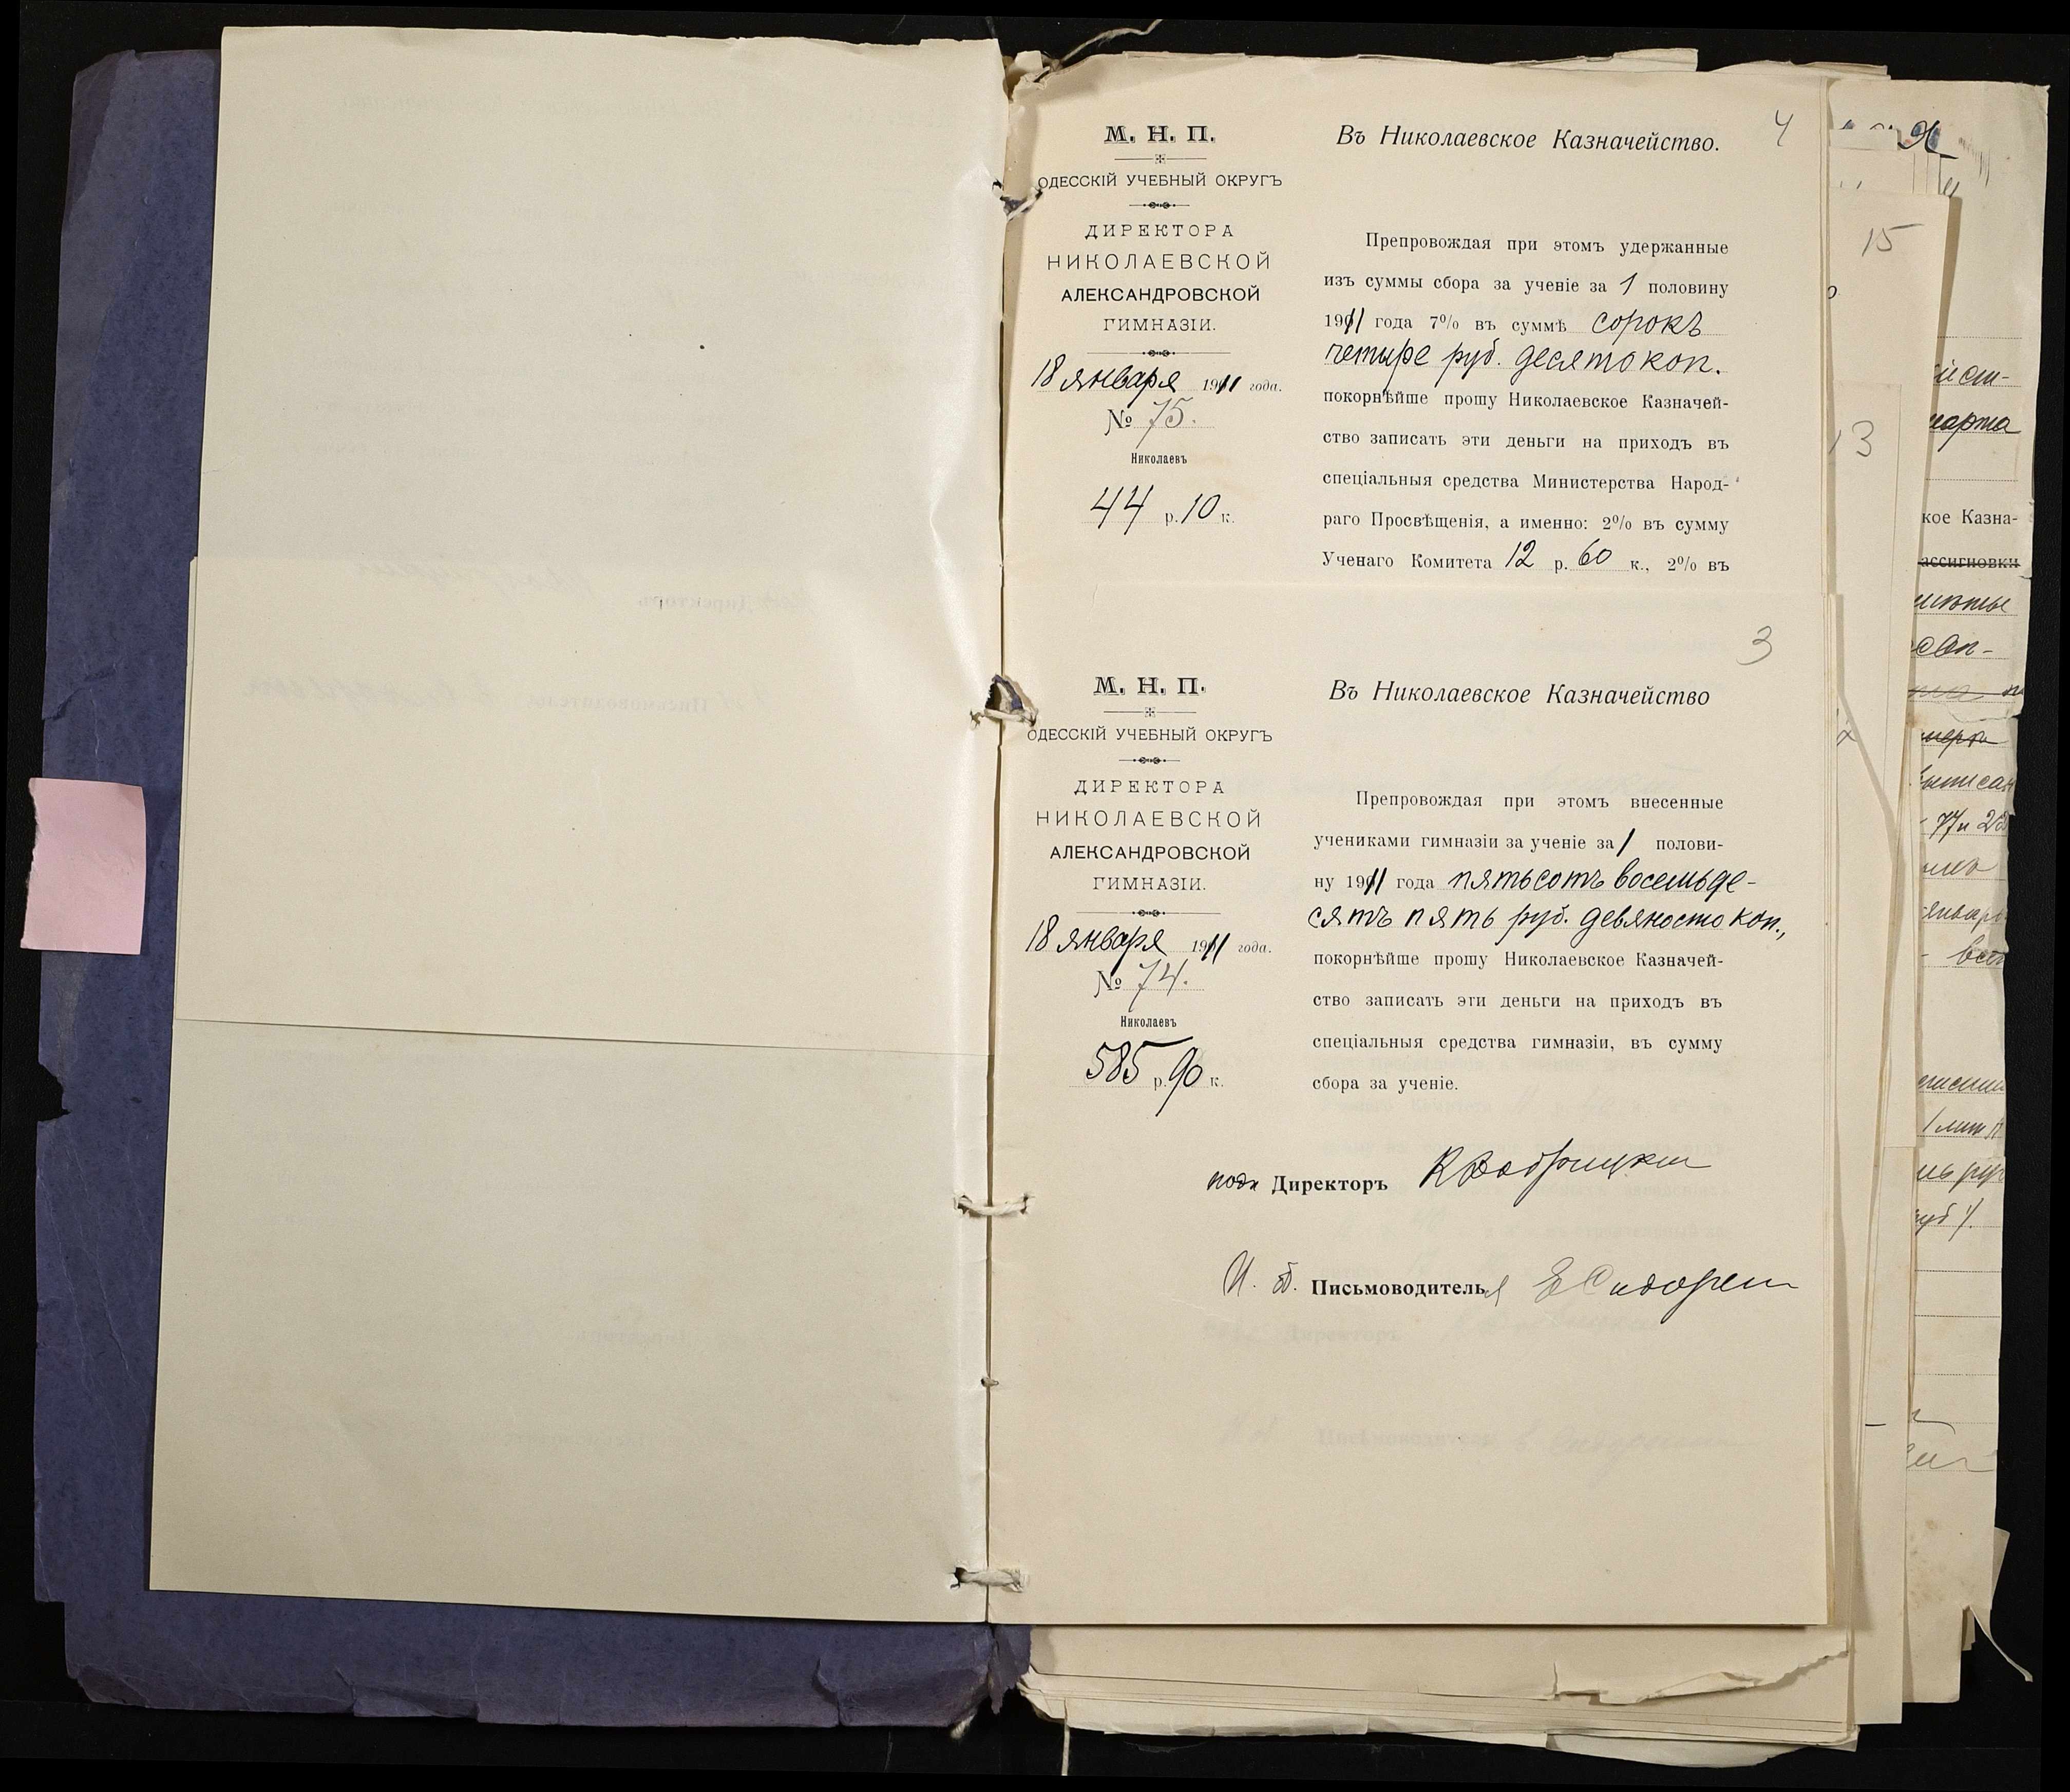 4
М. Н. П.
ОДЕССКІЙ УЧЕБНЫЙ ОКРУГЪ
ДИРЕКТОРА
НИКОЛАЕВСКОЙ
АЛЕКСАНДРОВСКОЙ
ГИМНАЗІИ.
18 января 1911 года.
№ 75.
Николаевъ
44 р. 10 к.
Въ Николаевское Казначейство.
Препровождая при этомъ удержанные
изъ суммы сбора за ученіе за 1 половину
1911 года 7% въ суммѣ сорокъ
четыре руб. десято коп.
покорнѣйше прошу Николаевское Казначей-
ство записать эти деньги на приходъ въ
спеціальныя средства Министерства Народ-
раго Просвѣщенія, а именно: 2% въ сумму
Ученаго Комитета 12 р. 60 к., 2% въ
3
М. Н. П.
ОДЕССКІЙ УЧЕБНЫЙ ОКРУГЪ
ДИРЕКТОРА
НИКОЛАЕВСКОЙ
АЛЕКСАНДРОВСКОЙ
ГИМНАЗІИ.
18 января 1911 года.
№ 74.
Николаевъ
585 р. 90 к.
Въ Николаевское Казначейство
Препровождая при этомъ внесенные
учениками гимназіи за ученіе за 1 полови-
ну 1911 года пятьсотъ восемьде-
сятъ пять руб. девяносто коп.,
покорнѣйше прошу Николаевское Казначей-
ство записать эти деньги на приходъ въ
спеціальныя средства гимназіи, въ сумму
сбора за ученіе.
Директоръ
И. д. Письмоводителья
15
13
марта
кое Казна-
ассигновки